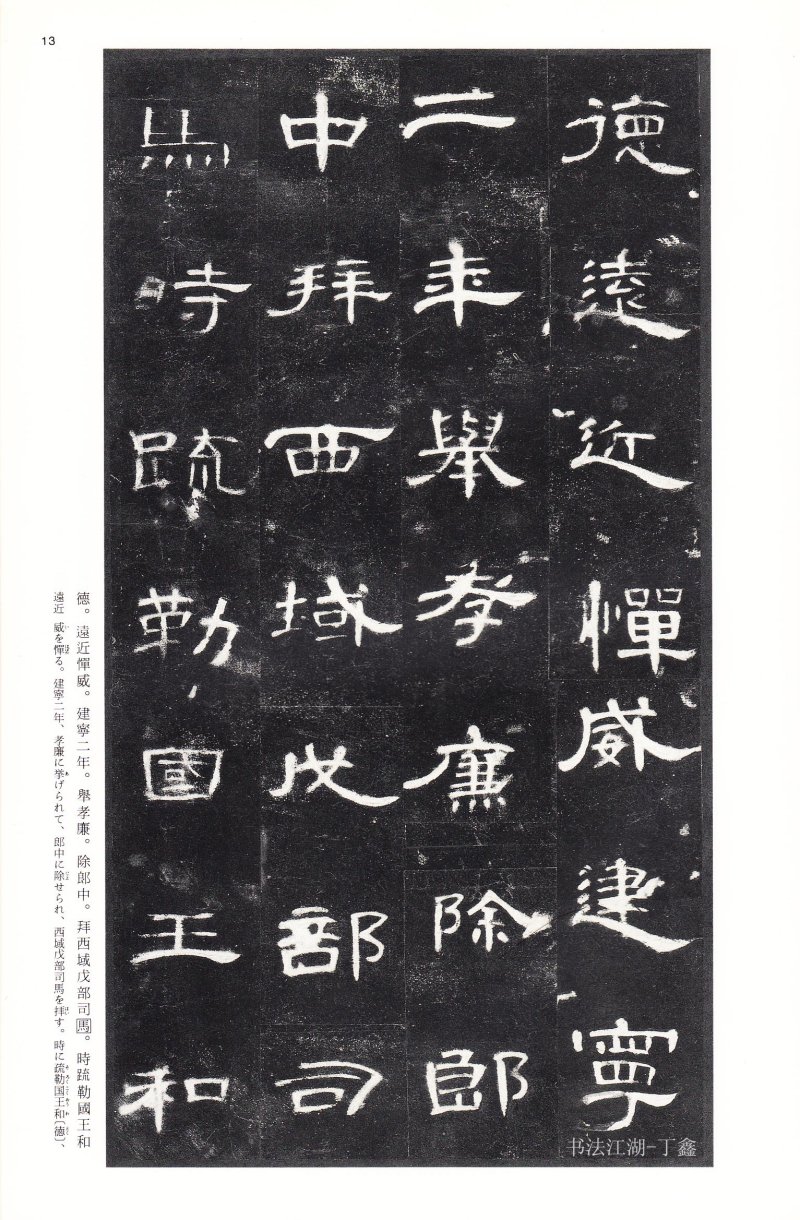 13
德遠近憚威建寧
二年舉孝廉除郎
中拜西域戊部司
馬時疏勒國王和
德。遠近憚威。建寧二年。舉孝廉。除郎中。拜西域戊部司馬。時疏勒國王和
遠近 威を憚る。建寧二年、孝廉に挙げられて、郎中に除せられ、西域戊部司馬を拝す。時に疏勒国王和〔德〕、
书法江湖-丁鑫